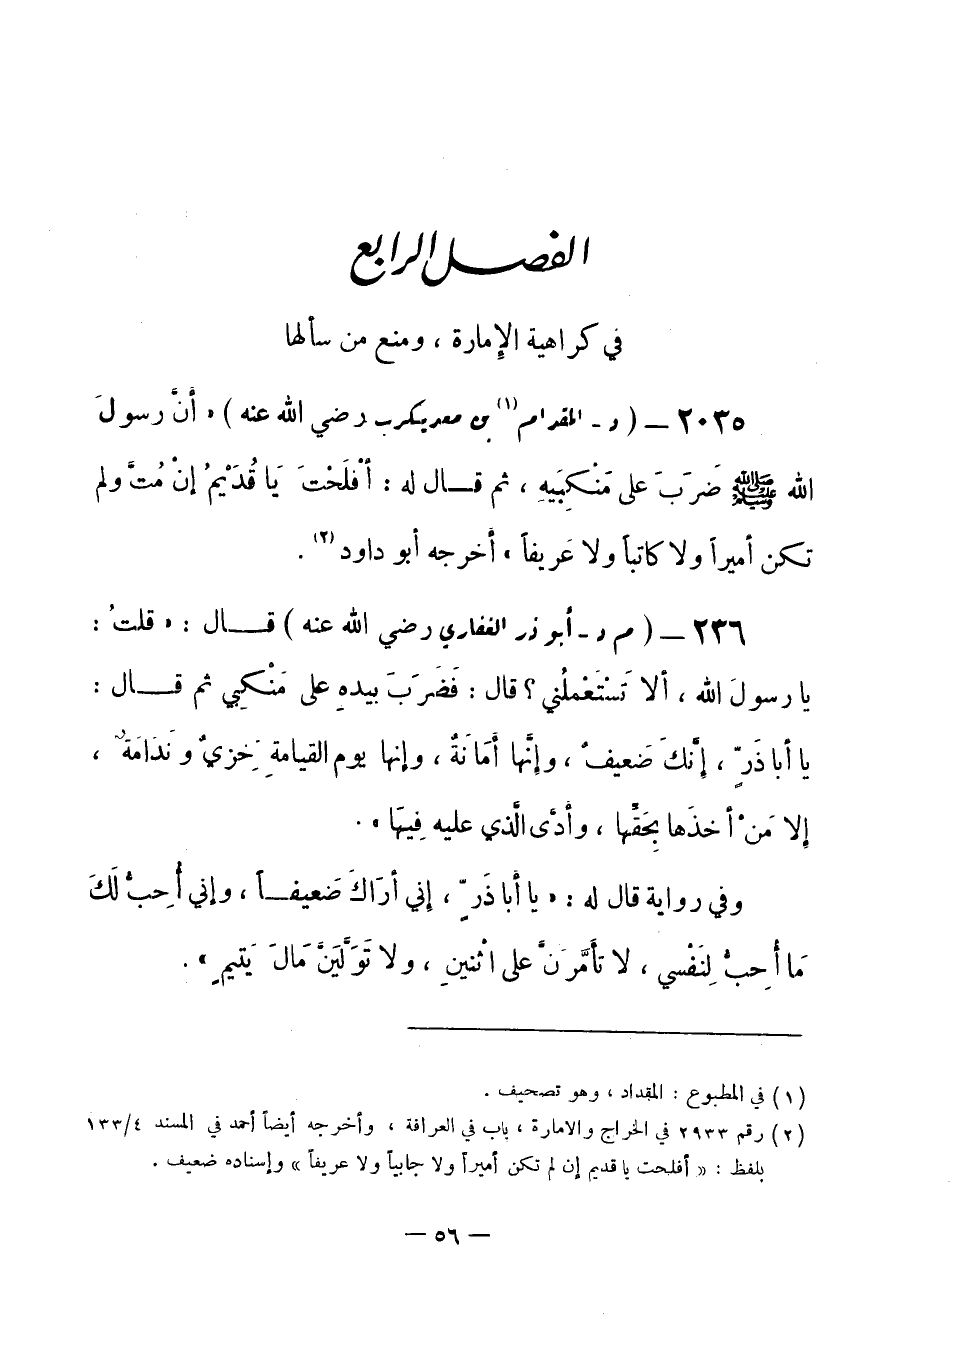 الفصل الرابع
في كراهية الإمارة ، ومنع من سألها
٢٠٣٥ ــ ( د ـ المقدام (١) بن معديكرب رضي الله عنه ) « أنَّ رسولَ
الله ﷺ ضَرَبَ على مَنْكِبَيهِ ، ثم قـــال له : أفْلَحْتَ يا قُدَيْمُ إنْ مُتَّ ولم
تكن أميراً ولا كاتباً ولا عَريفاً » أخرجه أبو داود (٢) .
٢٣٦ ــ ( م د ـ أبو ذر الغفاري رضي الله عنه ) قـــال : « قلتُ :
يا رسولَ الله ، ألا تَسْتَعْمِلُني ؟ قال : فَضَرَبَ بيدهِ على مَنْكِبي ثم قـــال :
يا أبا ذَرٍّ ، إنَّكَ ضَعيفٌ ، وإنَّها أَمَانَةٌ ، وإنها يوم القيامةِ خِزيٌ وَنَدَامَةٌ ،
إلا مَنْ أخذَها بِحَقِّها ، وأدَّى الَّذي عليه فِيهَا » .
وفي رواية قال له : « يا أبا ذَرٍّ ، إني أرَاكَ ضَعيفـــاً ، وإني أُحِبُّ لَكَ
مَا أُحِبُّ لِنَفْسي ، لا تَأَمَّرَنَّ على اثْنينِ ، ولا تَوَلَّيَنَّ مَالَ يَتيمٍ » .
(١) في المطبوع : المقداد ، وهو تصحيف .
(٢) رقم ٢٩٣٣ في الخراج والامارة ، باب في العرافة ، وأخرجه أيضاً أحمد في المسند ١٣٣/٤
بلفظ : « أفلحت يا قديم إن لم تكن أميراً ولا جابياً ولا عريفاً » وإسناده ضعيف .
— ٥٦ —